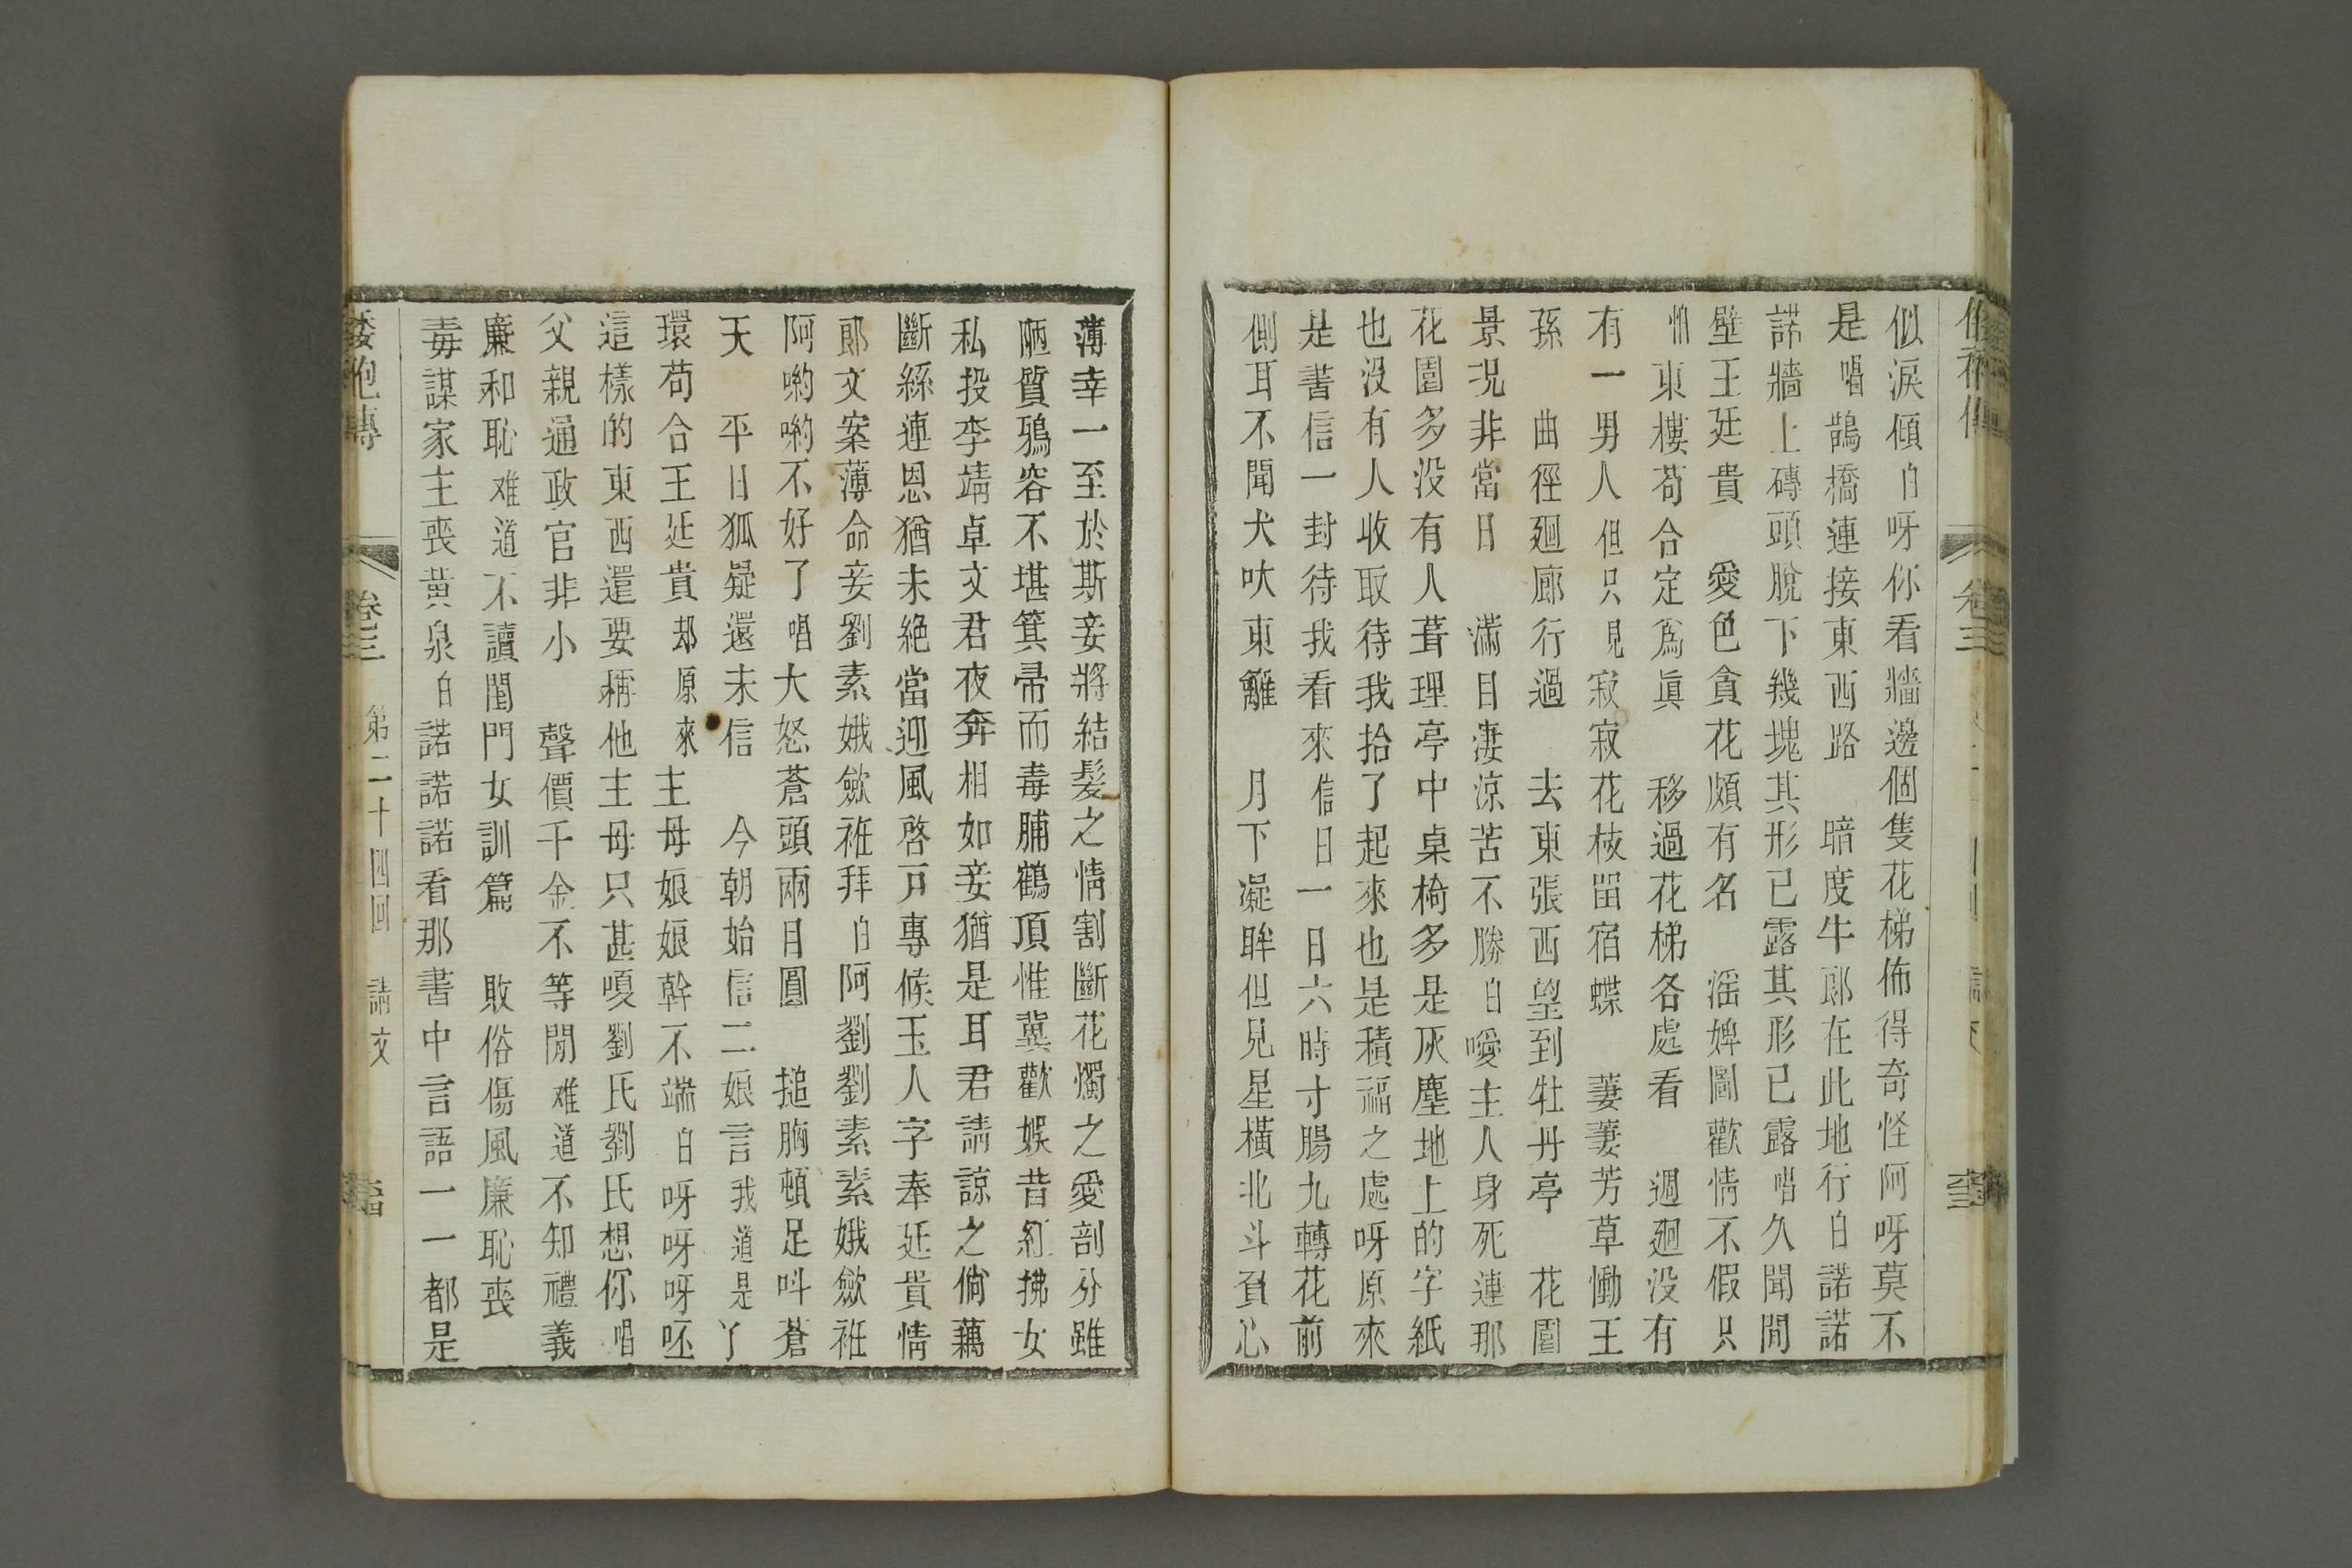 似淚傾白呀你看牆邊個隻花梯佈得奇怪阿呀莫不
是唱鵲橋連接東西路　暗度牛郎在此地行白諾諾
諾牆上磚頭脫下幾塊其形已露其形已露唱久聞間
壁王廷貴　愛色貪花頗有名　滛婢圖歡情不假只
怕東樓苟合定爲眞　移過花梯各處看　週廻没有
有一男人但只見寂寂花枝畱宿蝶　萋萋芳草慟王
孫　曲徑廻廊行過　去東張西望到牡丹亭　花園
景况非當日　滿目淒涼苦不勝白噯主人身死連那
花園多没有人葺理亭中桌椅多是灰塵地上的字紙
也没有人收取待我拾了起來也是積福之處呀原來
是書信一封待我看來信日一日六時寸腸九轉花前
側耳不聞犬吠東籬　月下凝眸但見星橫北斗負心
薄幸一至於斯妾將結髮之情割斷花燭之愛剖分雖
陋質鴉容不堪箕帚而毒脯鶴頂惟冀歡娛昔紅拂女
私投李靖卓文君夜奔相如妾猶是耳君請諒之倘藕
斷絲連恩猶未絕當迎風啓戸專候玉人字奉廷貴情
郎文案薄命妾劉素娥歛袵拜白阿劉劉素素娥歛袵
阿喲喲不好了唱大怒蒼頭兩目圓　搥胸頓足呌蒼
天　平日狐疑還未信　今朝始信二娘言我道是丫
環苟合王廷貴却原來主母娘娘幹不端白呀呀呀呸
這樣的東西還要稱他主母只甚嗄劉氏劉氏想你唱
父親通政官非小　聲價千金不等閒难道不知禮義
廉和恥难道不讀閨門女訓篇　敗俗傷風廉恥喪
毒謀家主喪黃泉白諾諾諾看那書中言語一一都是
倭袍傳　卷三　第二十四回　請文